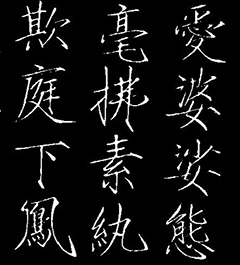 愛婆娑態
毫拂素紈
欺庭下鳳